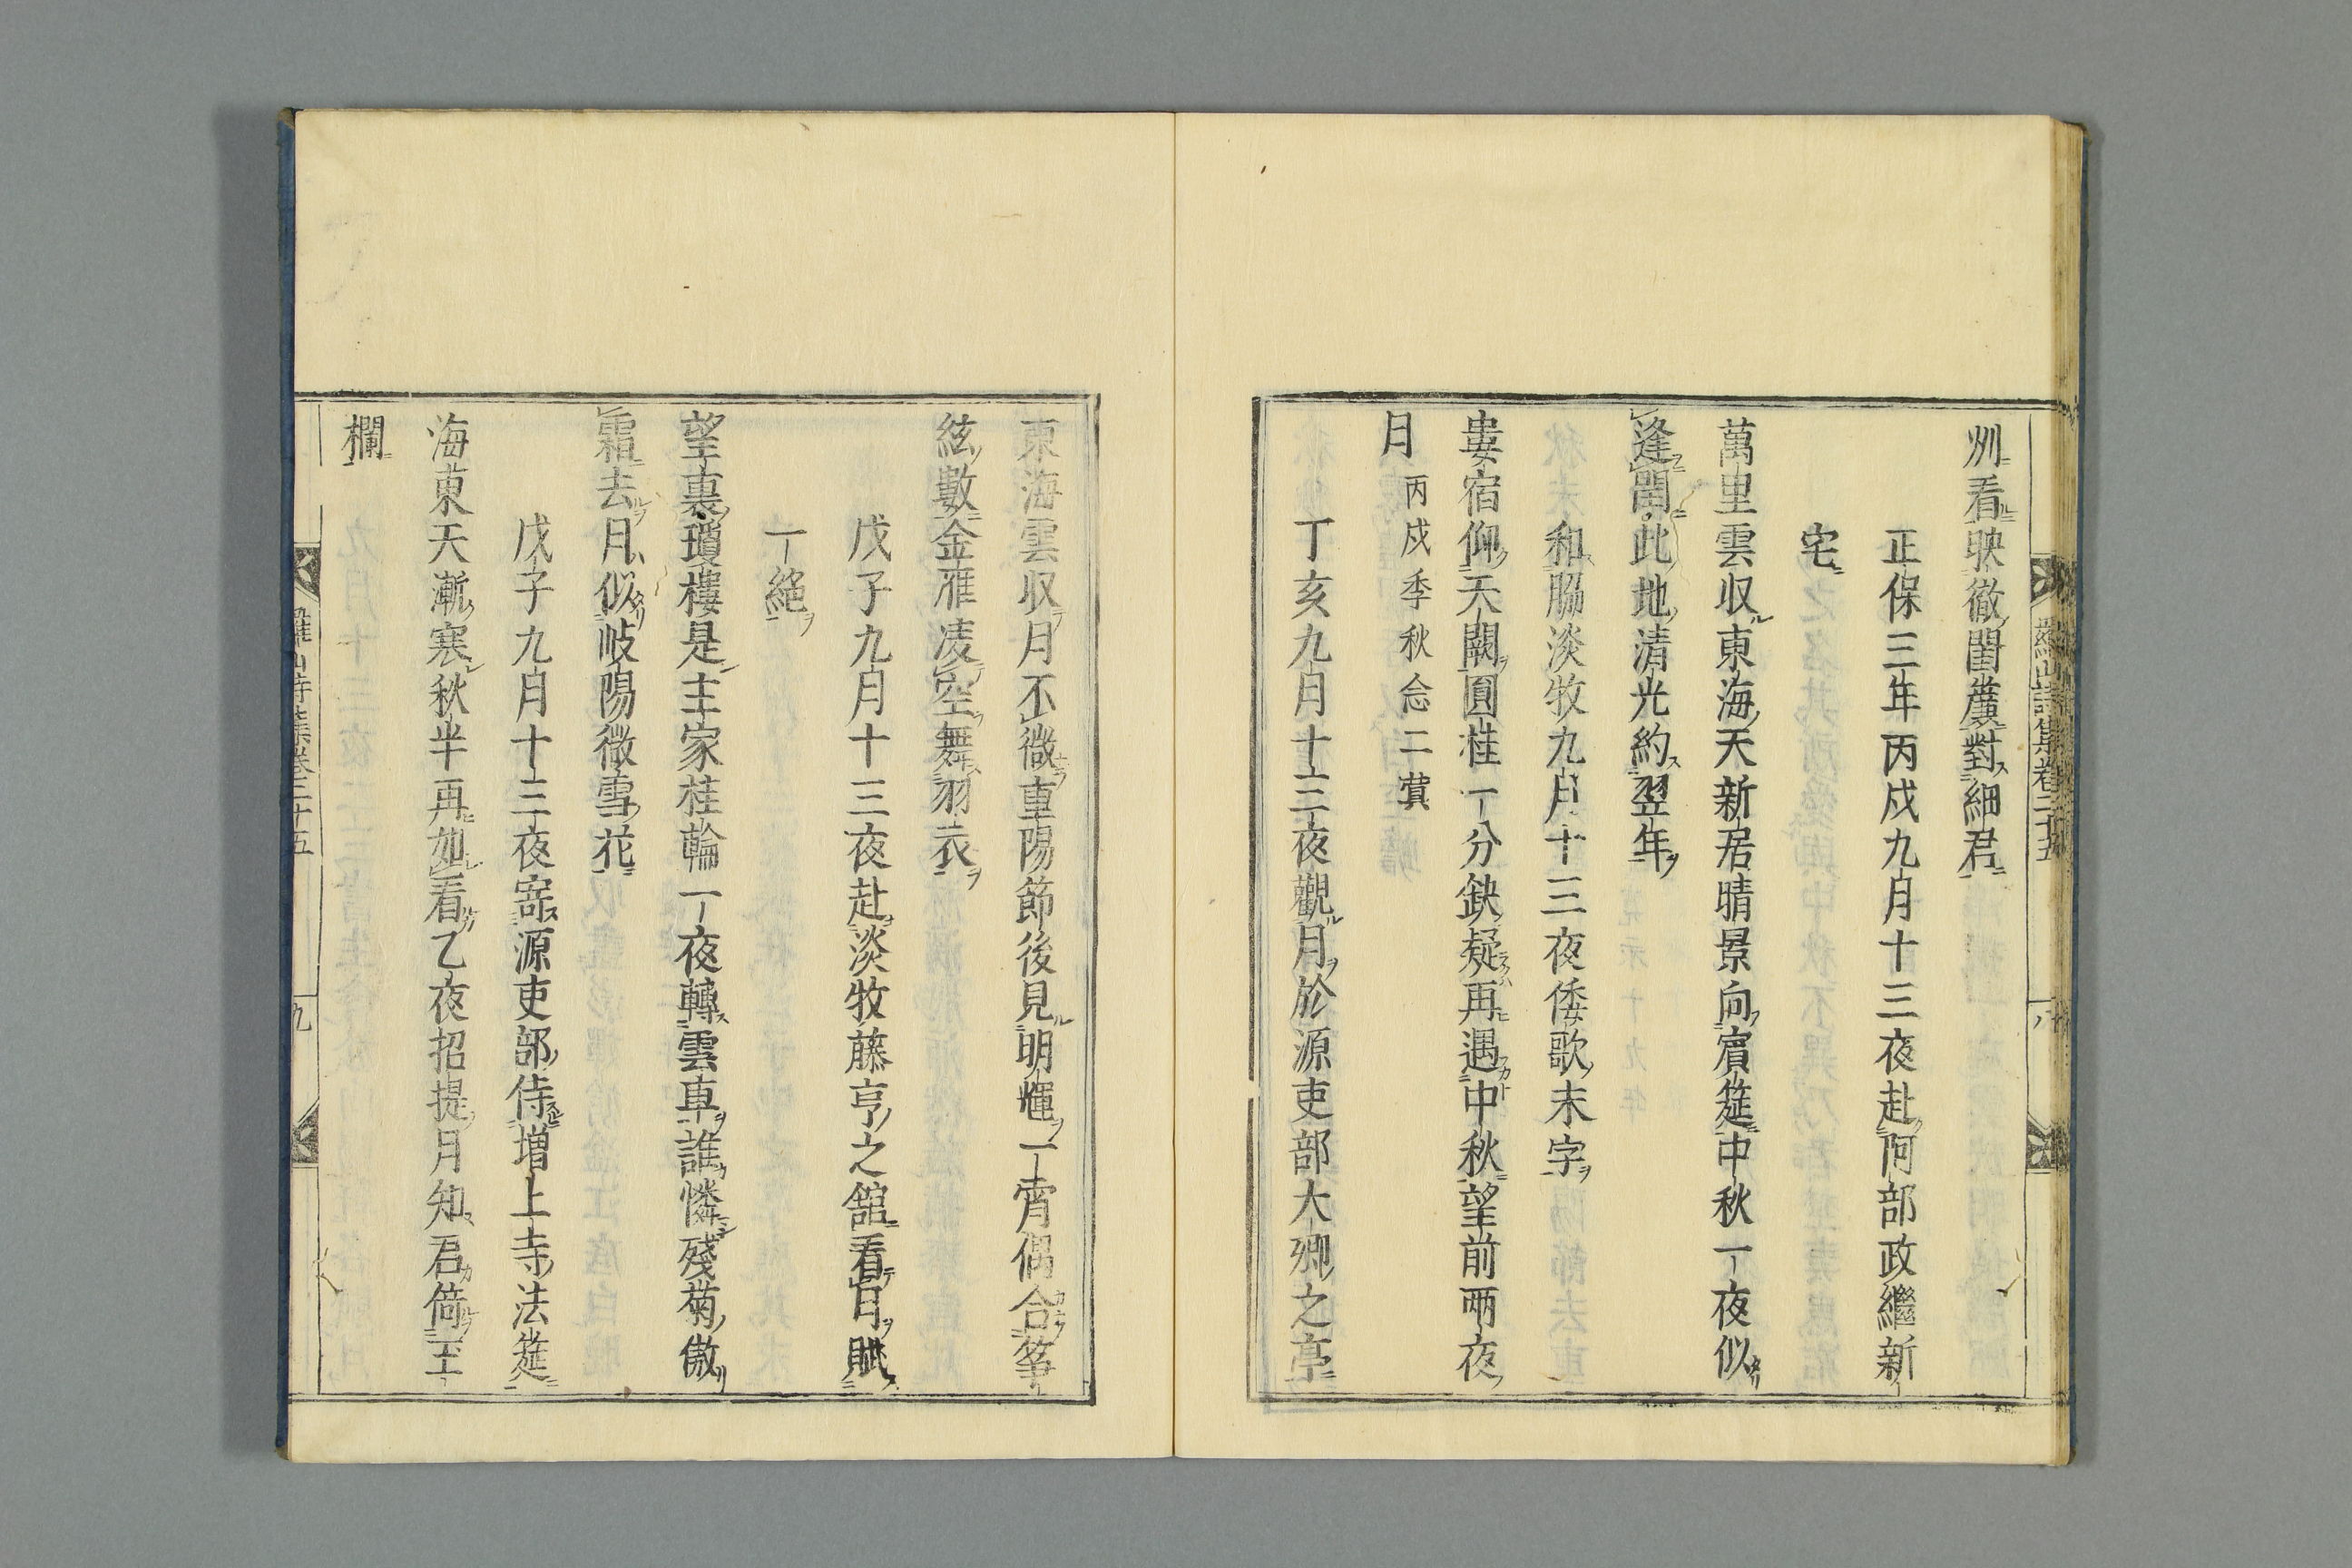 羅山詩集卷三十五
八
州看映徹閨簾對細君
正保三年丙戌九月十三夜赴阿部政繼新
宅
萬里雲収東海天新居晴景向賓筵中秋一夜似
逢閏此地清光約翌年
和脇淡牧九月十三夜倭歌末字
婁宿仰天闕圓桂一分缺疑再遇中秋望前兩夜
月 丙戌季秋念二蓂
丁亥九月十三夜觀月於源吏部大卿之亭
東海雲収月不微重陽節後見明輝一宵偶合筝
絃數金雁凌空舞羽衣
戊子九月十三夜赴淡牧藤亨之舘看月賦
一絕
望裏瓊樓是主家桂輪一夜轉雲車誰憐殘菊傲
霜去月似岐陽微雪花
戊子九月十三夜寄源吏部侍増上寺法筵
海東天漸寒秋半再如看乙夜招提月知君倚玉
欄
羅山詩集卷三十五
九